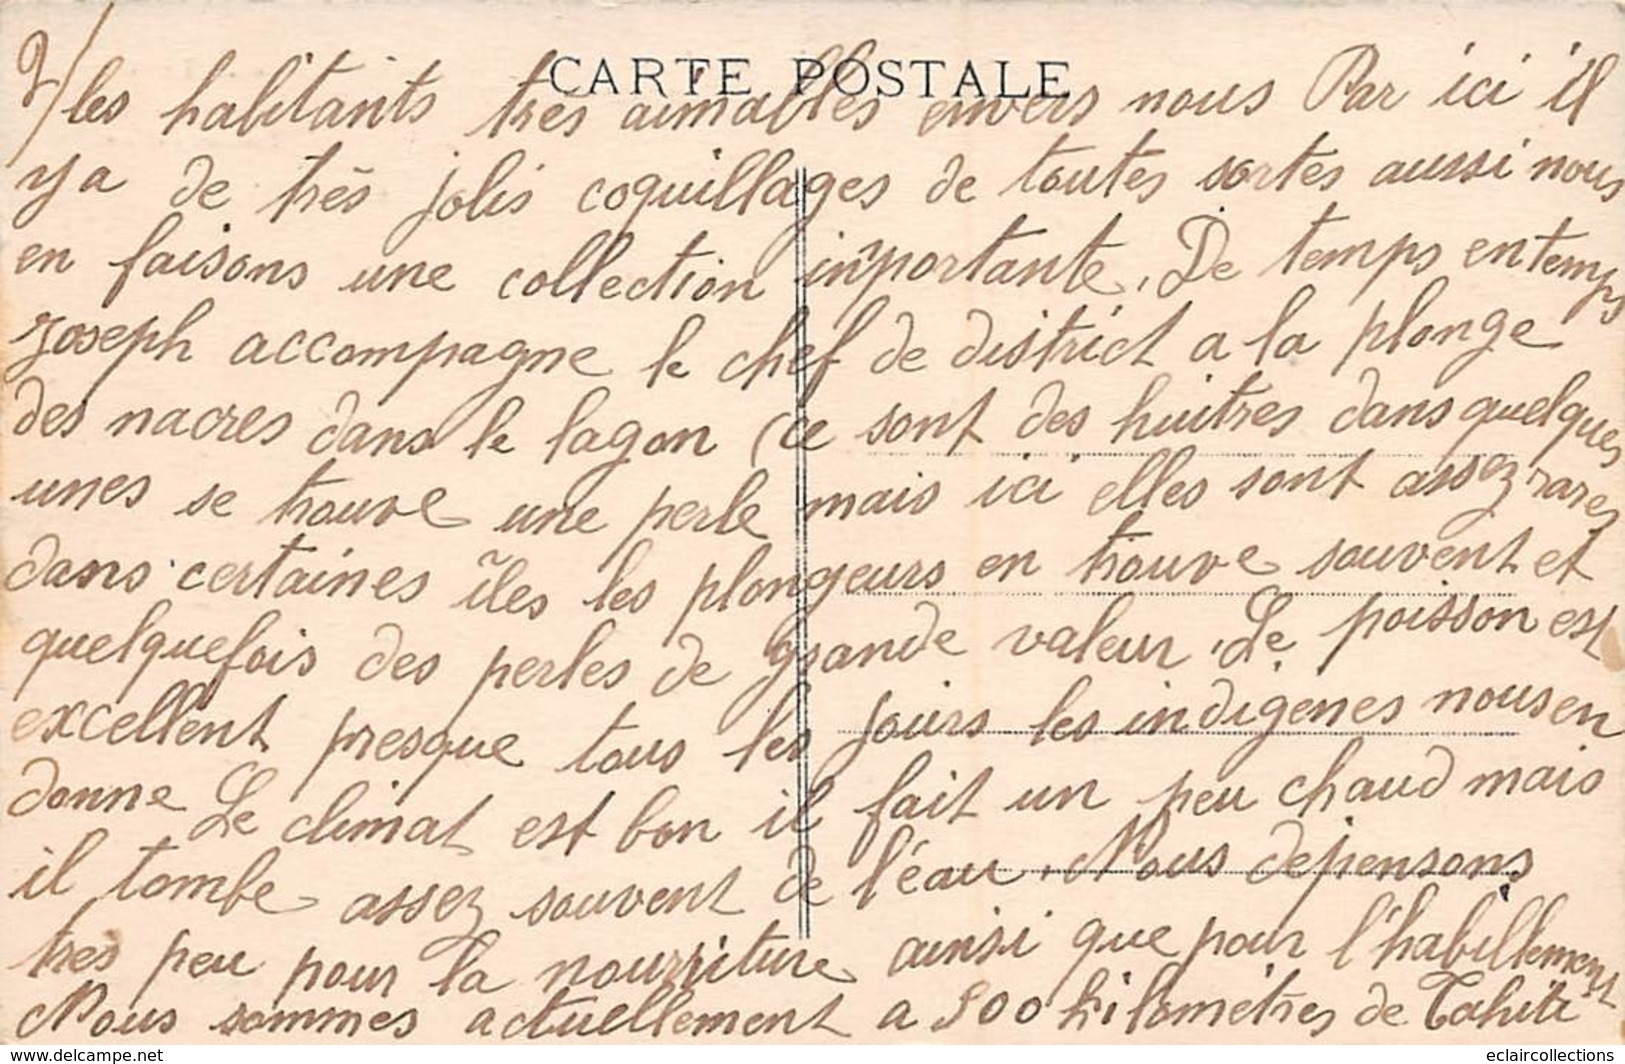 CARTE POSTALE
2/ les habitants tres aimables envers nous Par ici il
y a de très jolis coquillages de toutes sortes aussi nous
en faisons une collection importante. De temps en temps
Joseph accompagne le chef de district a la plonge
des nacres dans le lagon (ce sont des huitres dans quelques
unes se trouve une perle mais ici elles sont assez rares
dans certaines îles les plongeurs en trouve souvent et
quelquefois des perles de grande valeur. Le poisson est
excellent presque tous les jours les indigenes nous en
donne Le climat est bon il fait un peu chaud mais
il tombe assez souvent de l'eau. Nous depensons
tres peu pour la nourriture ainsi que pour l'habillement
Nous sommes actuellement a 500 kilometres de Tahiti
www.delcampe.net
eclaircollections